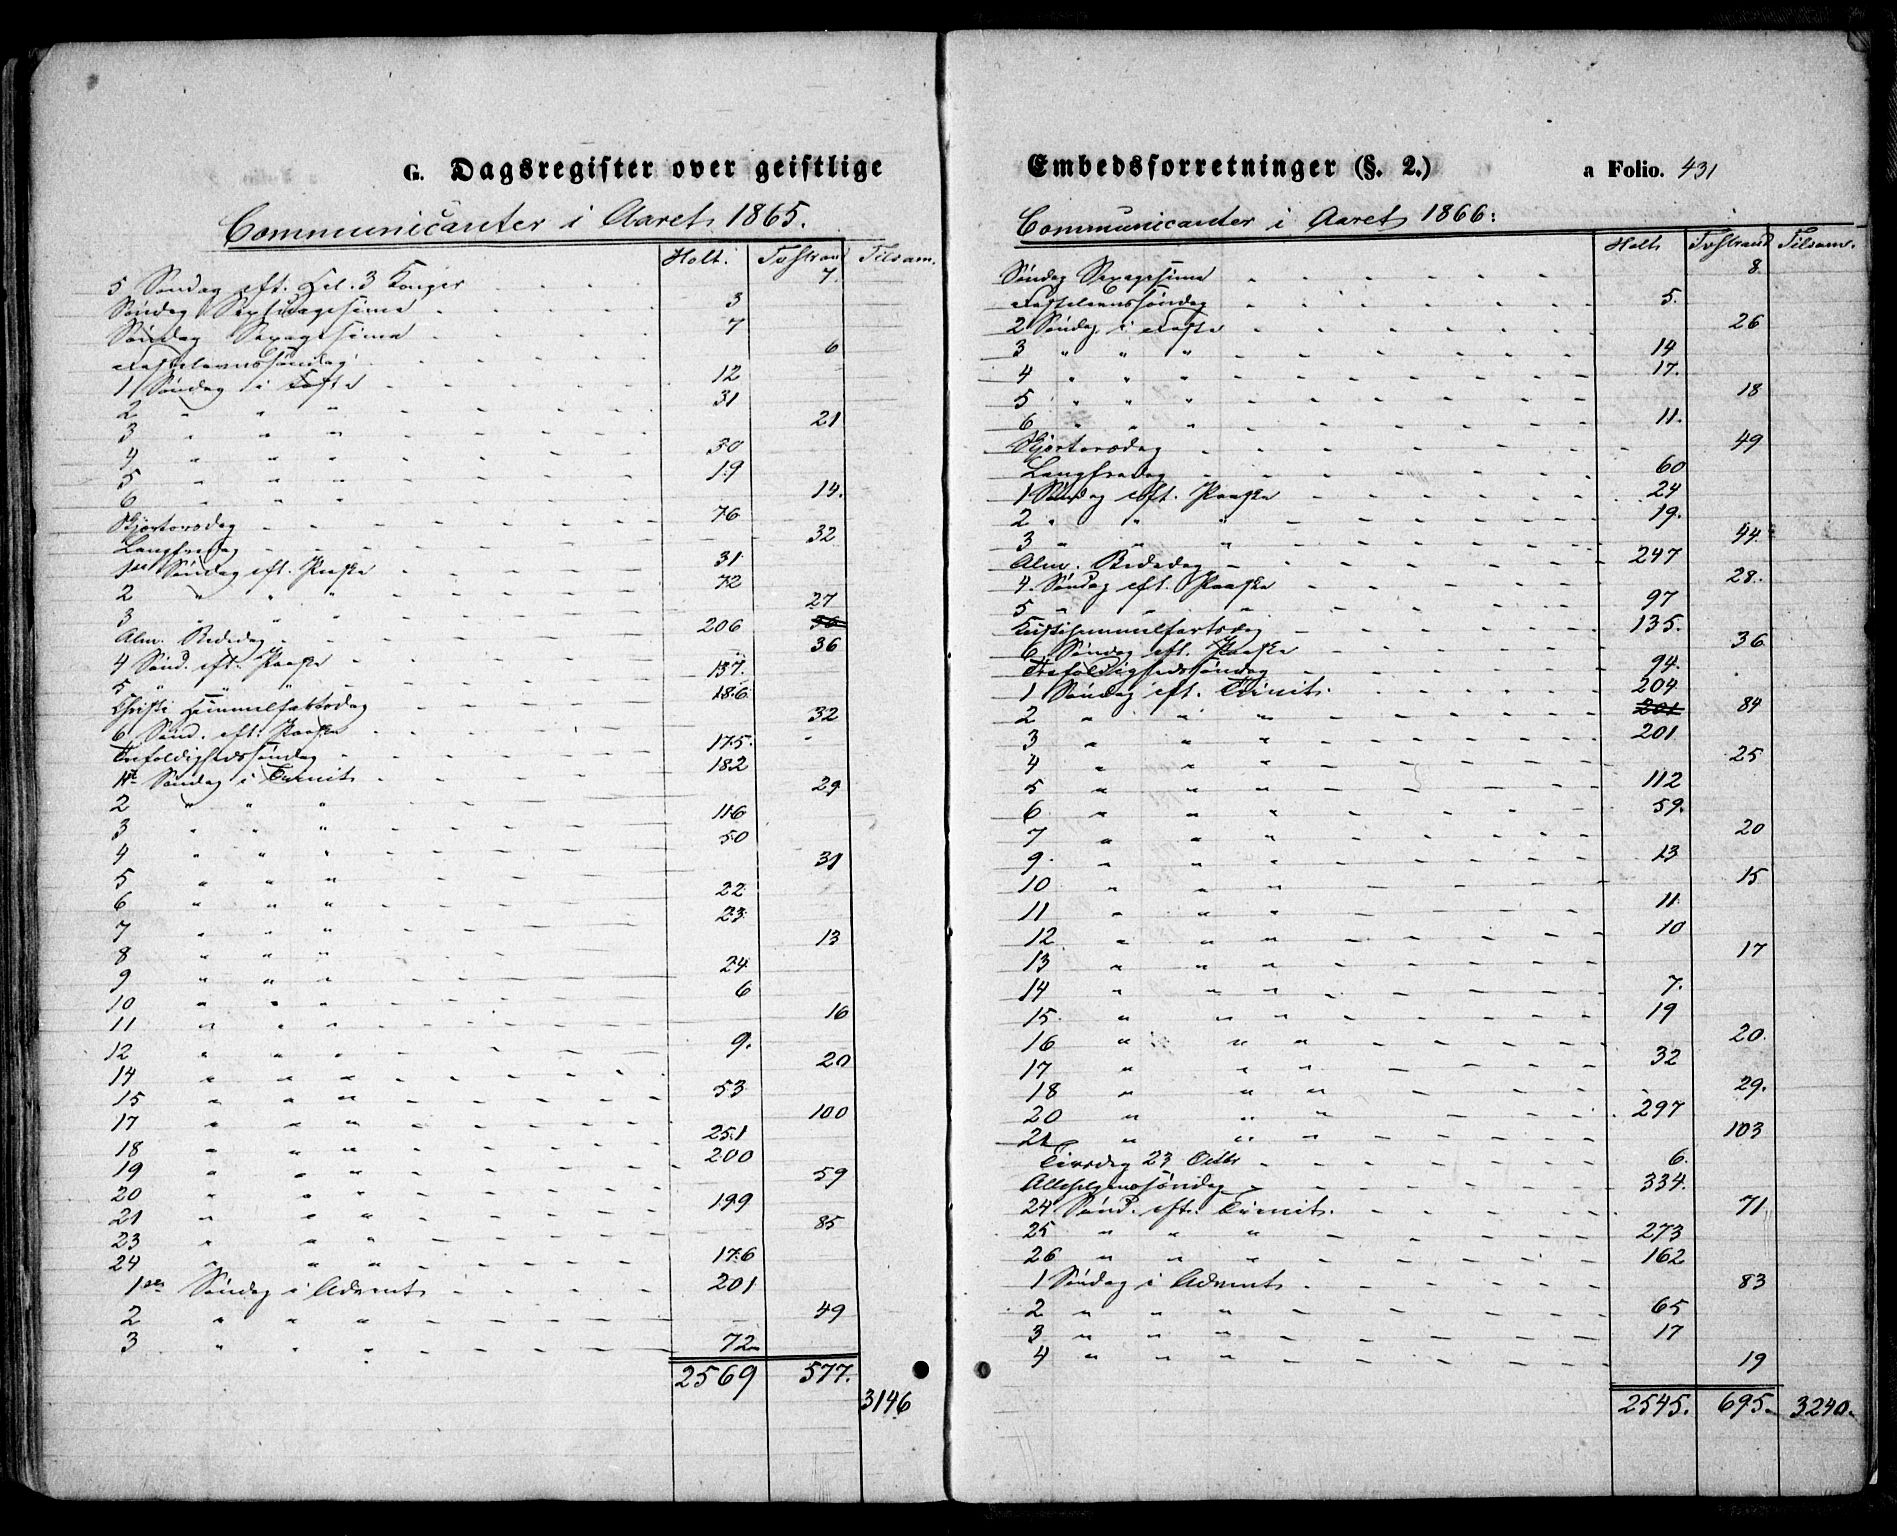 G. Dagsregister over geistlige
Communicanter i Aaret 1865.
Holt. Tvedstrand Tilsam.
5 Søndag eft. Hel. 3 Konger - - - 7.
Søndag Septuagesima - - - 3
Søndag Sexagesima - - - 7
Fastelavnssøndag - - - 6
1 Søndag i Faste - - - 12
2 " " " - - - 31
3 " " " - - - 21
4 " " " - - - 30
5 " " " - - - 19
6 " " " - - - 14.
Skjærtorsdag - - - 76
Langfredag - - - 32
1ste Søndag eft. Paaske - - - 31
2 " " " - - - 72
3 " " " - - - 27
Alm. Bededag - - - 206 36
4 Sønd. eft. Paaske - - - 36
5 " " - - - 137.
Christi Himmelfartsdag - - - 186
6 Sønd. eft. Paaske - - - 32
Trefoldighedssøndag - - - 175.
1ste Søndag i Trinit. - - - 182
2 " " " - - - 29
3 " " " - - - 116
4 " " " - - - 50
5 " " " - - - 31
6 " " " - - - 22
7 " " " - - - 23
8 " " " - - - 13
9 " " " - - - 24
10 " " " - - - 6
11 " " " - - - 16
12 " " " - - - 9.
14 " " " - - - 20
15 " " " - - - 53
17 " " " - - - 100
18 " " " - - - 251
19 " " " - - - 200
20 " " " - - - 59
21 " " " - - - 199
23 " " " - - - 85
24 " " " - - - 176
1ste Søndag i Advent - - - 201
2 " " " - - - 49
3 " " " - - - 72
2569 577.
3146
Embedsforretninger (§. 2.)
a Folio. 431
Communicanter i Aaret 1866:
Holt Tvedstrand Tilsam.
Søndag Sexagesima - - - 8
Fastelavnssøndag - - - 5.
2 Søndag i Faste - - - 26
3 " " " - - - 14
4 " " " - - - 17.
5 " " " - - - 18
6 " " " - - - 11.
Skjærtorsdag - - - 49
Langfredag - - - 60
1 Søndag eft. Paaske - - - 24
2 " " " - - - 19.
3 " " " - - - 44
Alm. Bededag - - - 247
4. Søndag eft. Paaske - - - 28.
5 " " " - - - 97
Kristihimmelfartsdag - - - 135.
6 Søndag eft. Paaske - - - 36
Trefoldighedssøndag - - - 94.
1 Søndag eft. Trinit. - - - 204
2 " " " - - - 201 84
3 " " " - - - 201
4 " " " - - - 25
5 " " " - - - 112
6 " " " - - - 59.
7 " " " - - - 20
9. " " " - - - 13
10 " " " - - - 15
11 " " " - - - 11
12 " " " - - - 10
13 " " " - - - 17
14 " " " - - - 7.
15. " " " - - - 19
16 " " " - - - 20.
17 " " " - - - 32
18 " " " - - - 29.
20 " " " - - - 297
21 " " " - - - 103
Tirsdag 23 Octbr - - - 6.
Allehelgenssøndag - - - 334.
24 Sønd. eft. Trinit. - - - 71
25 " " " - - - 273
26 " " " - - - 162
1 Søndag i Advent - - - 83
2 " " " - - - 65
3 " " " - - - 17
4 " " " - - - 19
2545. 695. 3240.